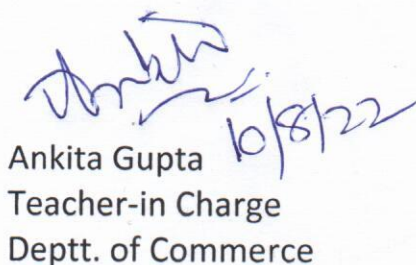 Ankita
10/8/22
Ankita Gupta
Teacher-in Charge
Deptt. of Commerce